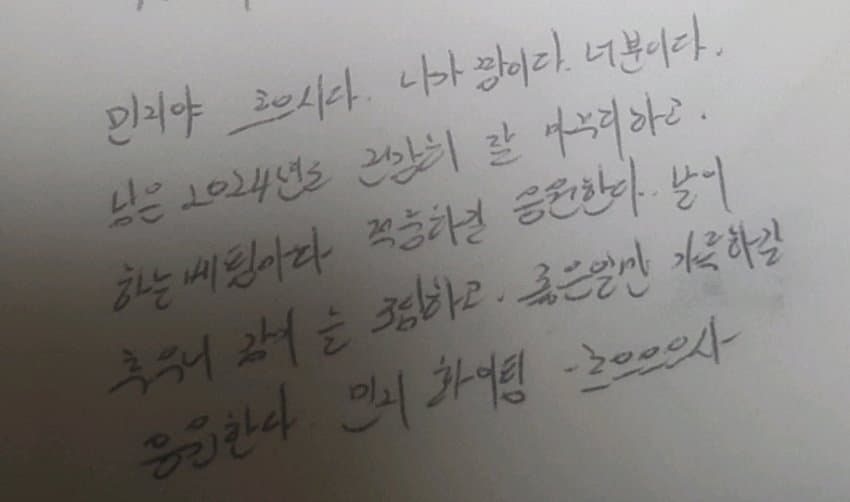 민지야 니가 짱이다. 너뿐이다.
남은 2024년도 건강히 잘 마무리하고.
하는 베팅마다 적중하길 응원한다. 날이
추우니 감기 늘 조심하고. 좋은일만 가득하길
응원한다. 민지 화이팅